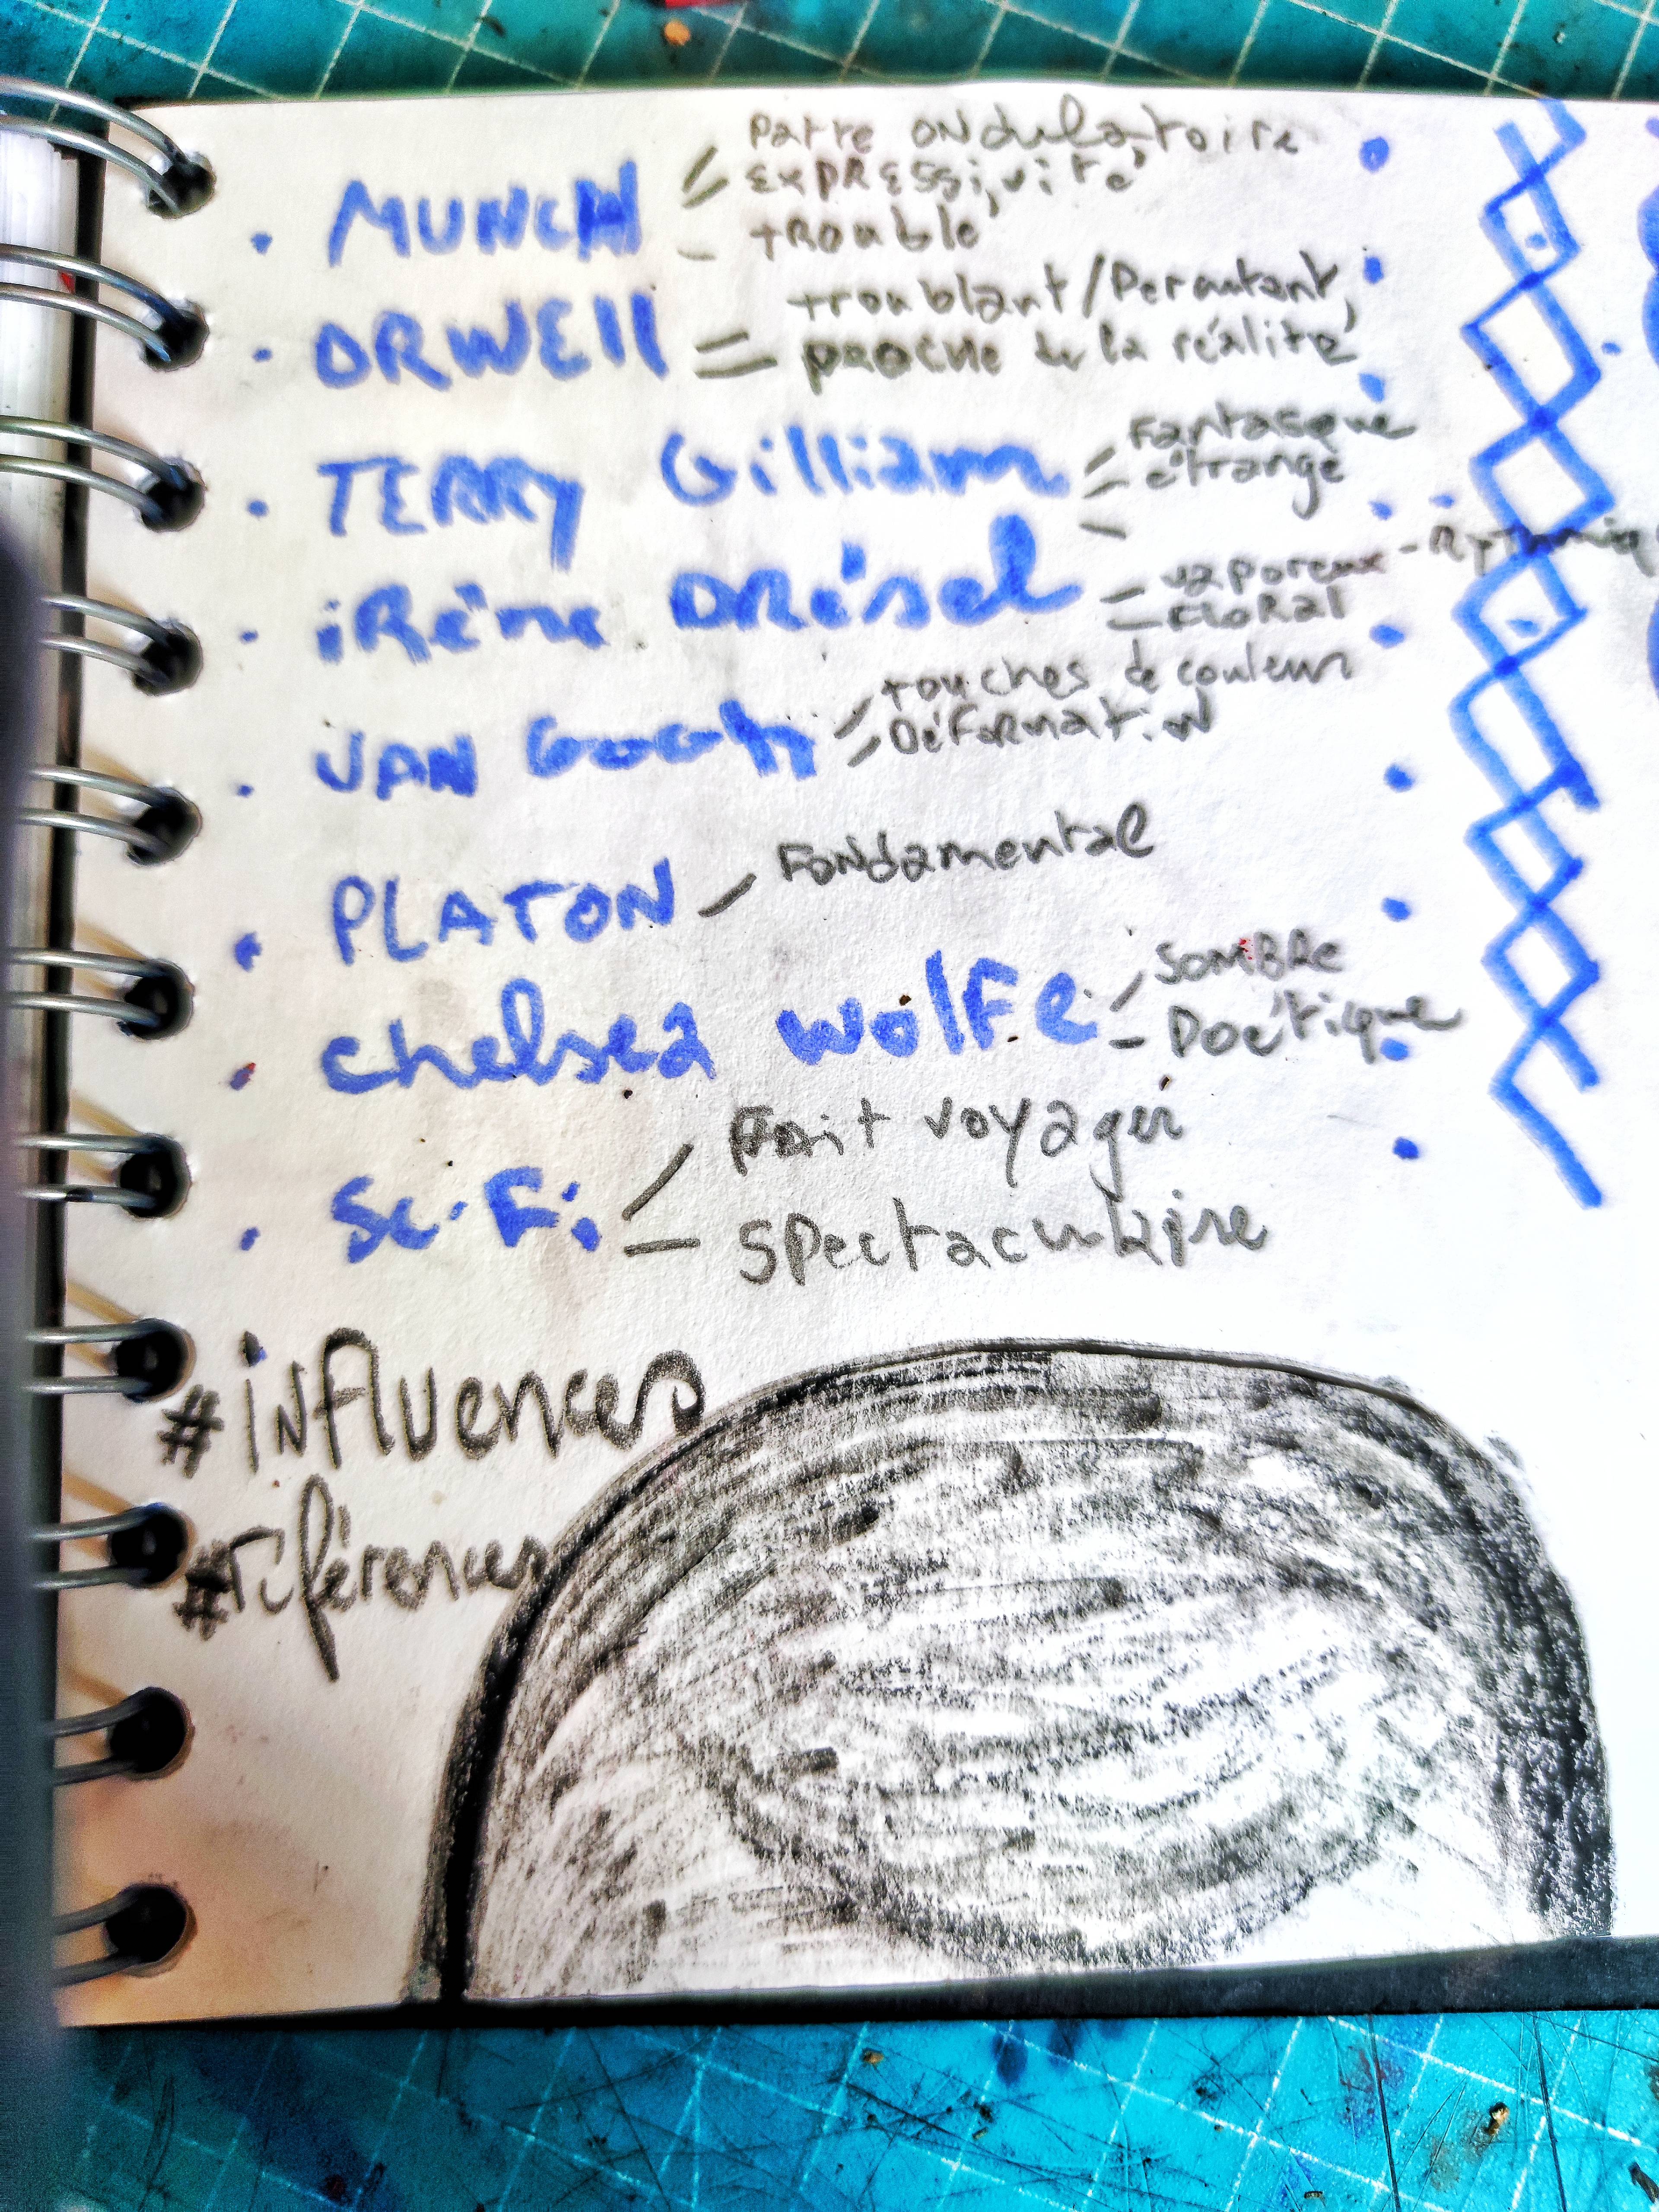 • MUNCH
patte ondulatoire
expressivité
- trouble
• ORWEll = troublant/Percutant,
proche de la réalité
• TERRY Gilliam - Fantasque
- étrange
-
• iRène DRésel - vaporeux - Rythmiq
- Floral
• VAN GoGh - touches de couleur
- Déformation
• PLATON - Fondamental
• chelsea wolfe - SOMBRe
- Poétique
• Sc-Fi - Fait voyager
- Spectaculaire
#influences
#références